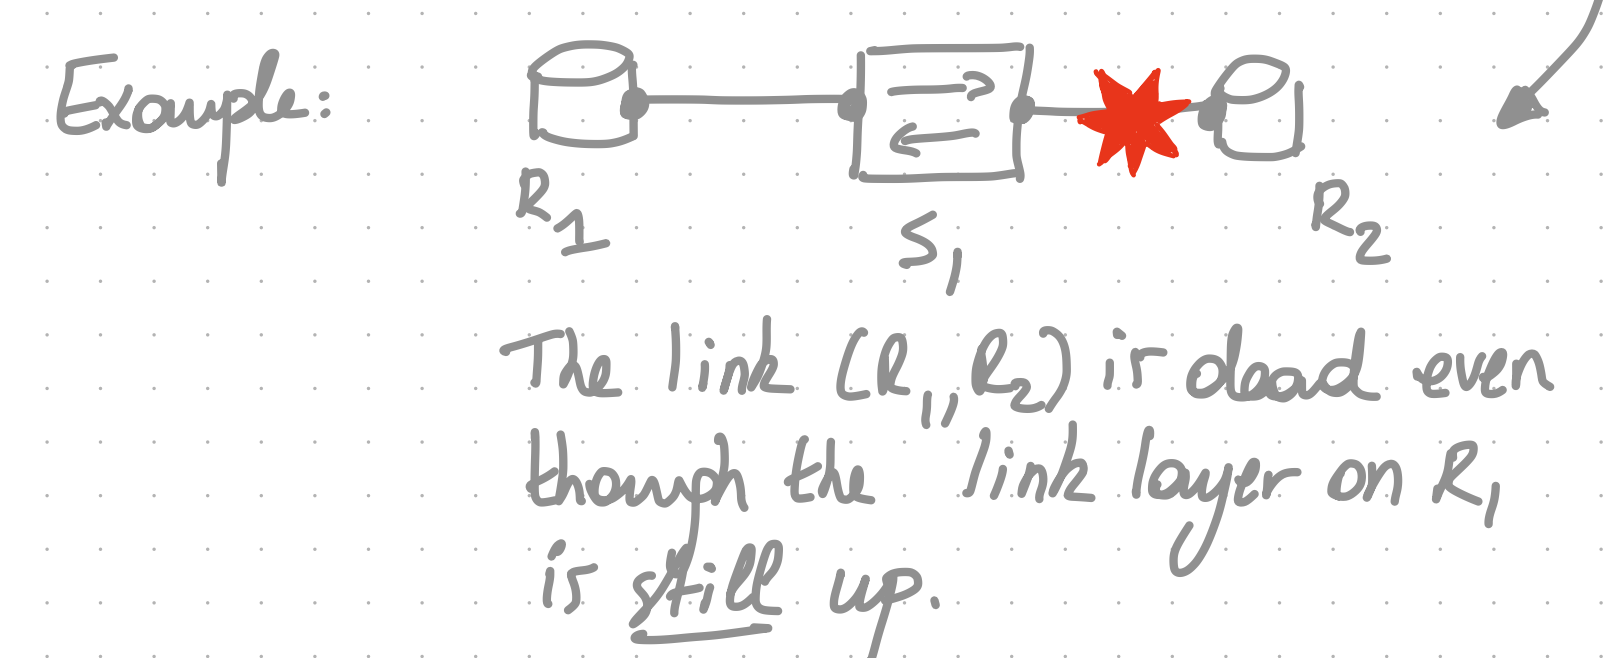 Example:
R1
S1
R2
The link (R1, R2) is dead even
though the link layer on R1
is still up.